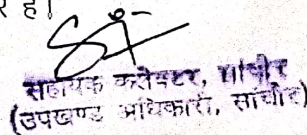 र है।
सहायक कलेक्टर, सांचौर
(उपखण्ड अधिकारी, सांचौर)